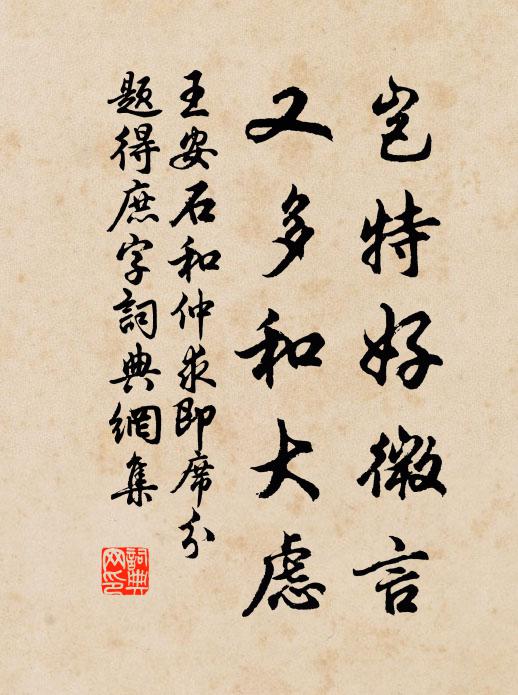 豈特好微言
又多和大慮
王安石和仲求即席分
題得庶字詞典網集
詞典
网印